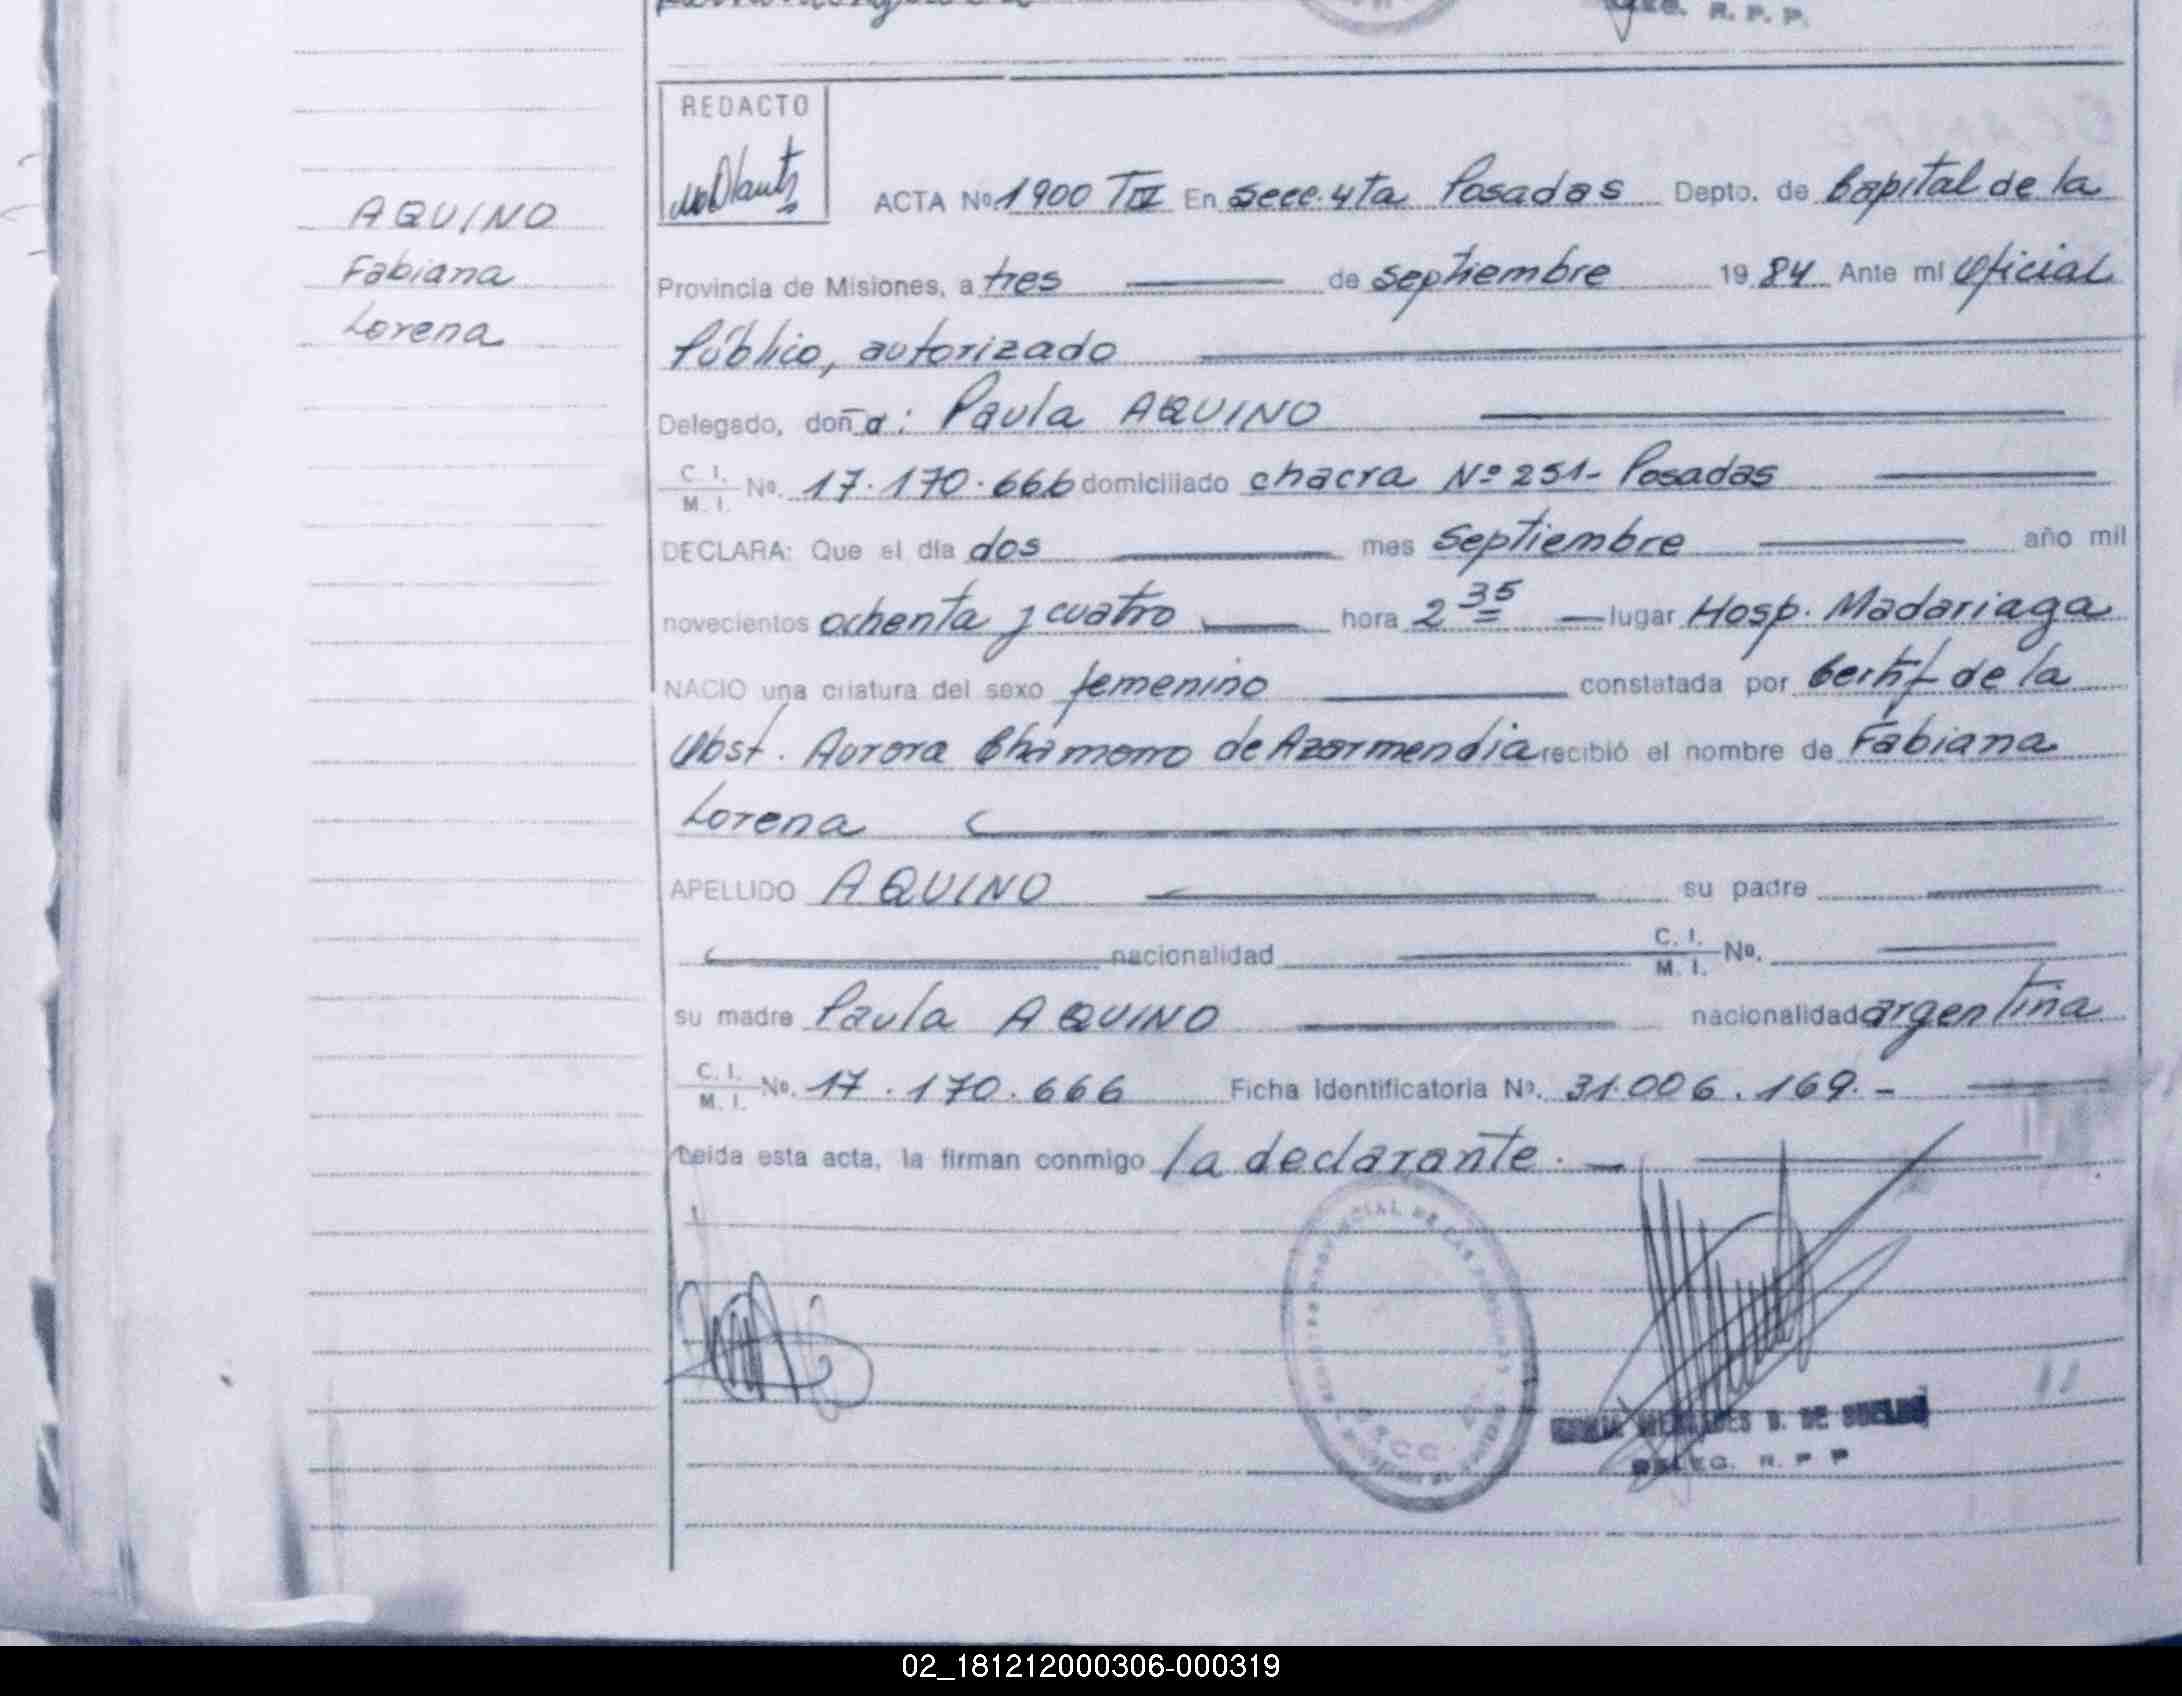 R. P. P.
REDACTO
AQUINO
Fabiana
Lorena
ACTA Nº 1900 TIV En Secc. 4ta Posadas Depto. de Capital de la
Provincia de Misiones, a tres de septiembre 1984 Ante mí Oficial
Público, autorizado
Delegado, doña: Paula AQUINO
C. I. / M. I. Nº. 17.170.666 domiciliado chacra Nº 251- Posadas
DECLARA: Que el día dos mes Septiembre año mil
novecientos ochenta y cuatro hora 2 35 lugar Hosp. Madariaga
NACIO una criatura del sexo femenino constatada por Certif de la
Obst. Aurora Chamorro de Azarmendia recibió el nombre de Fabiana
Lorena
APELLIDO AQUINO su padre
nacionalidad C. I. / M. I. Nº.
su madre Paula AQUINO nacionalidad argentina
C. I. / M. I. Nº. 17.170.666 Ficha Identificatoria Nº. 31.006.169.-
Leída esta acta, la firman conmigo la declarante.-
DELEG. R. P. P
02_181212000306-000319